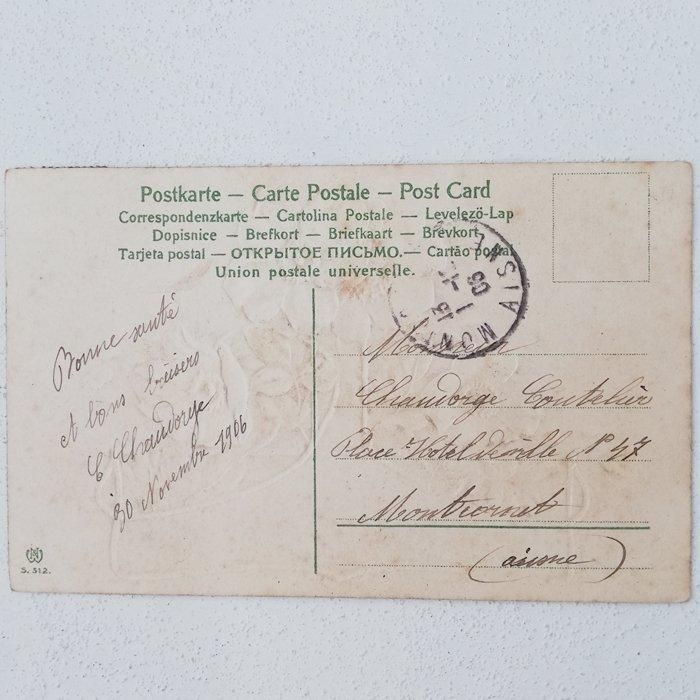 Postkarte — Carte Postale — Post Card
Correspondenzkarte — Cartolina Postale — Levelező-Lap
Dopisnice — Brefkort — Briefkaart — Brevkort
Tarjeta postal — ОТКРЫТОЕ ПИСЬМО. — Cartão postal
Union postale universelle.
Bonne santé
A bons baisers
E Chandorge
30 Novembre 1906
MONT
AISNE
Monsieur
Chandorge Coutelier
Place Hotel de ville N° 47
Montcornet
(aisne)
S. 312.